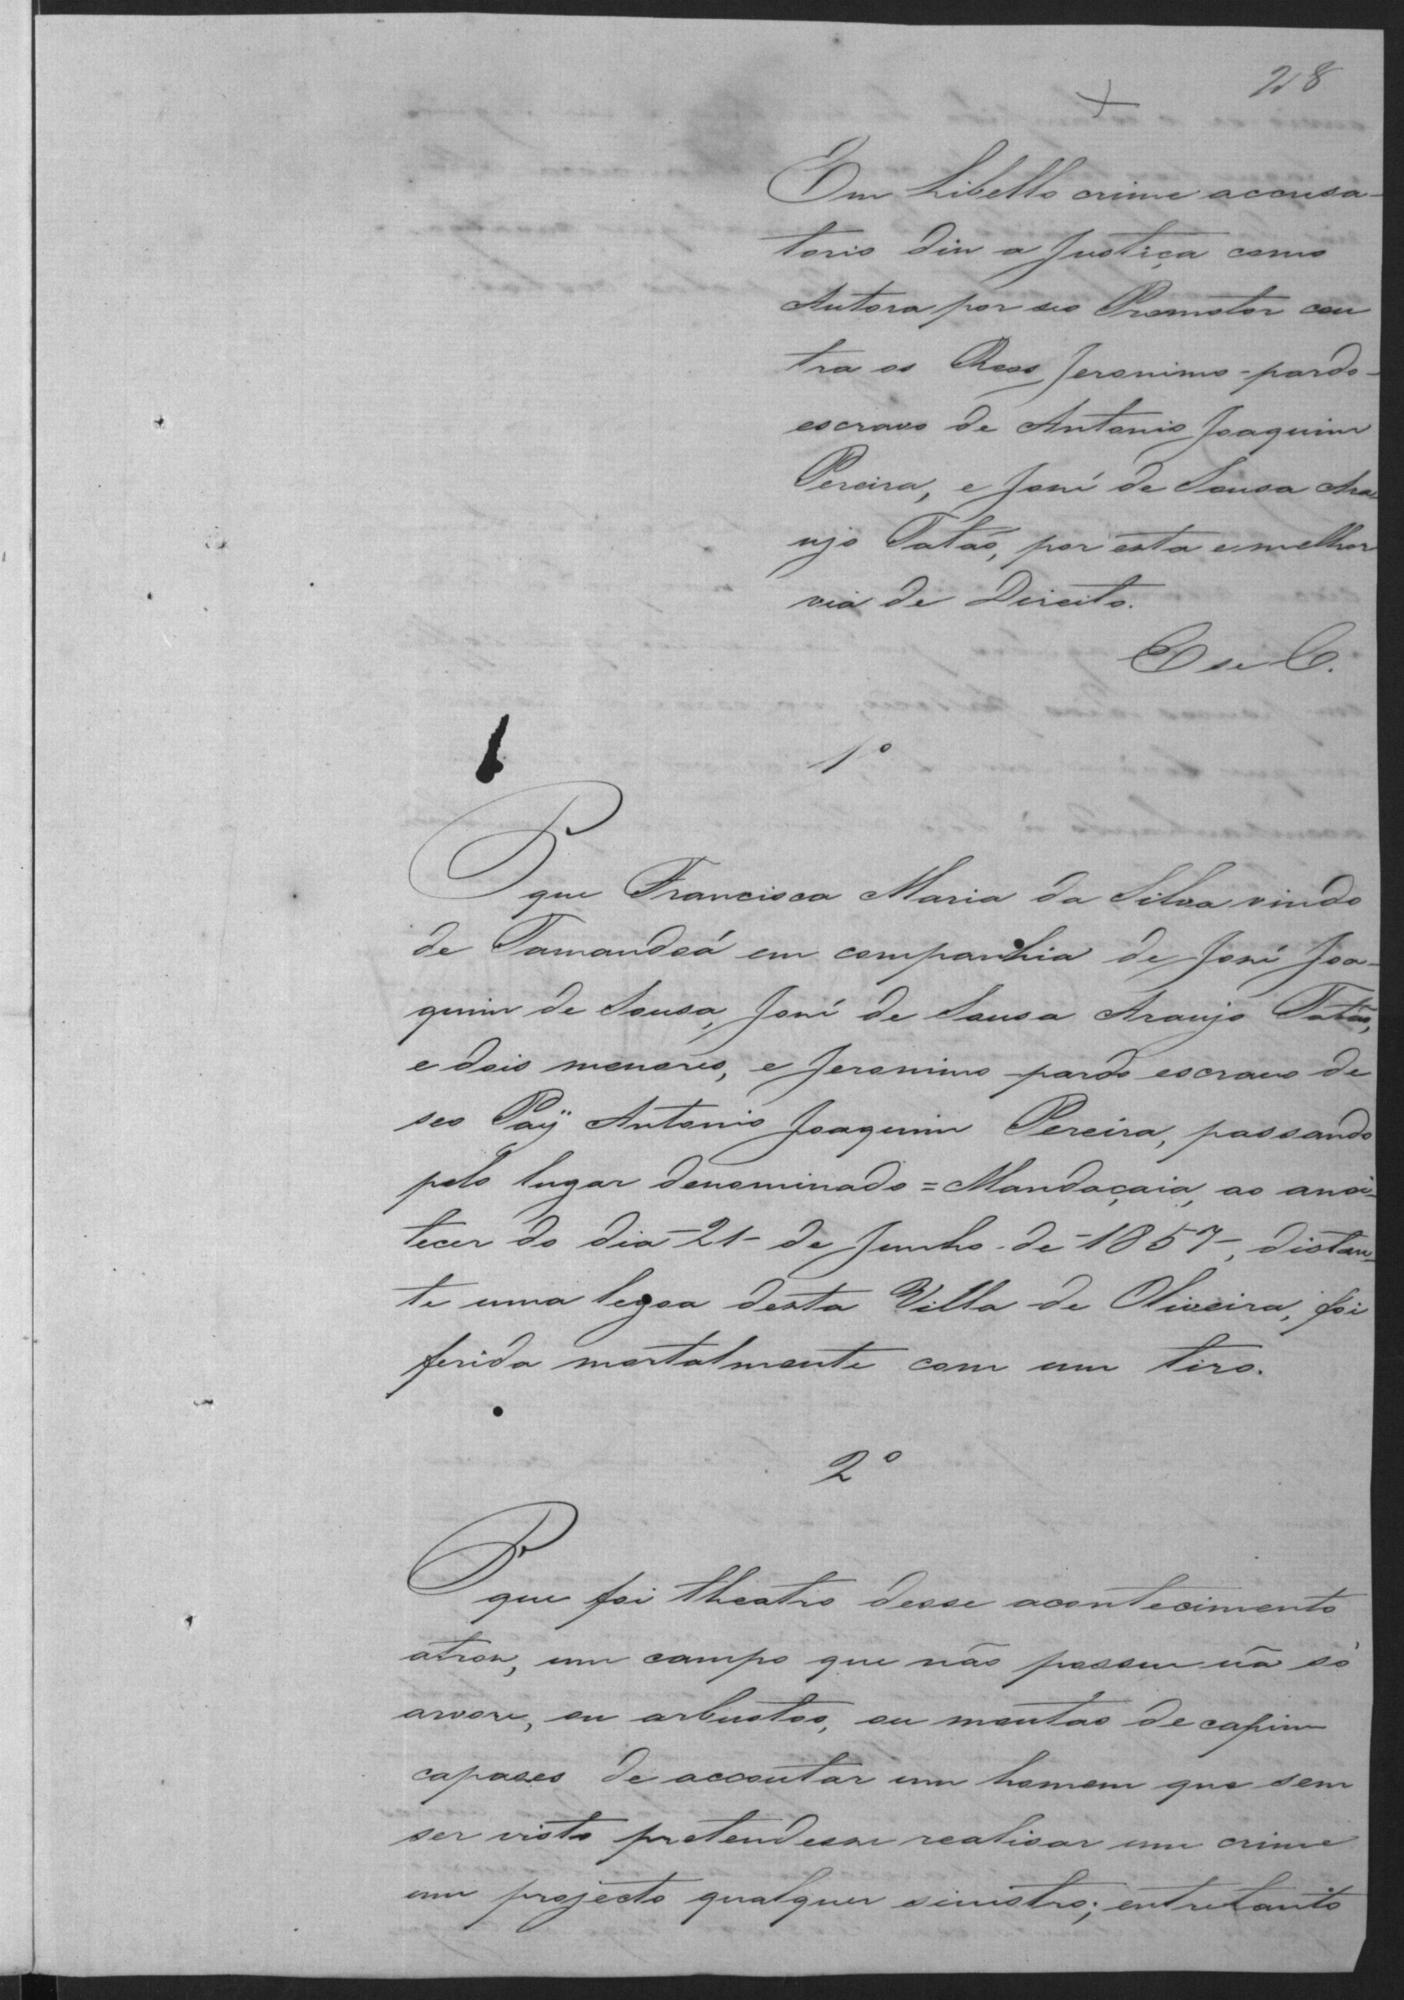 28
Em Libello crime accusa-
torio diz a Justiça como
Autora por seo Promotor con
tra os Reos Jeronimo - pardo -
escravo de Antonio Joaquim
Pereira, e José de Sousa Ara
ujo Tatão, por esta e melhor
via de Direito.
E se C.
1º
P que Francisca Maria da Silva vindo
de Tamanduá em companhia de José Joa-
quim de Sousa, José de Sousa Araujo Tatão,
e dois menores, e Jeronimo pardo escravo de
seo Paÿ Antonio Joaquim Pereira, passando
pelo lugar denominado = Mandaçaia, ao anoi-
tecer do dia - 21 - de Junho de - 1857 -, distan-
te uma legoa desta Villa de Oliveira, foi
ferida mortalmente com um tiro.
2º
P que foi theatro desse acontecimento
atroz, um campo que não possue uã só
arvore, ou arbustos, ou moutas de capim
capases de accoutar um homem que sem
ser visto pretendesse realisar um crime
um projecto qualquer sinistro; entretanto